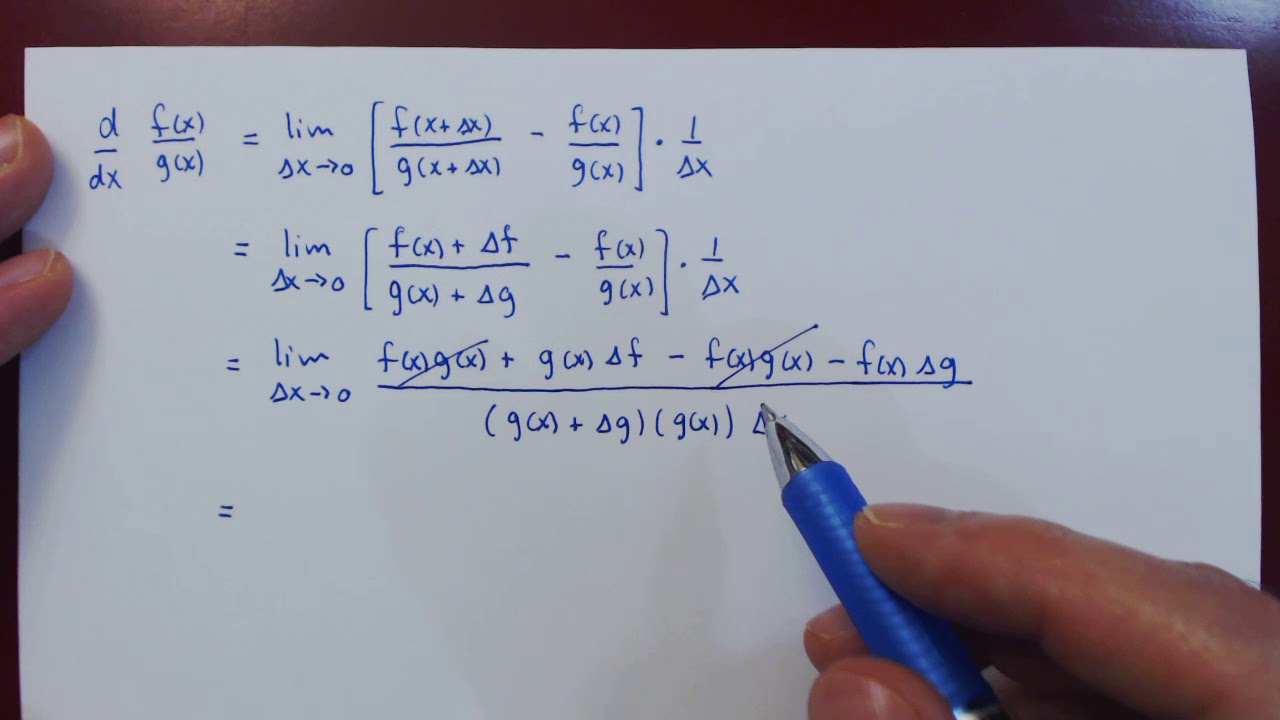 d/dx f(x)/g(x) = lim Δx→0 [ f(x+Δx)/g(x+Δx) - f(x)/g(x) ] · 1/Δx
= lim Δx→0 [ (f(x) + Δf)/(g(x) + Δg) - f(x)/g(x) ] · 1/Δx
= lim Δx→0 (f(x)g(x) + g(x) Δf - f(x)g(x) - f(x) Δg)/((g(x) + Δg)(g(x)) Δ
=